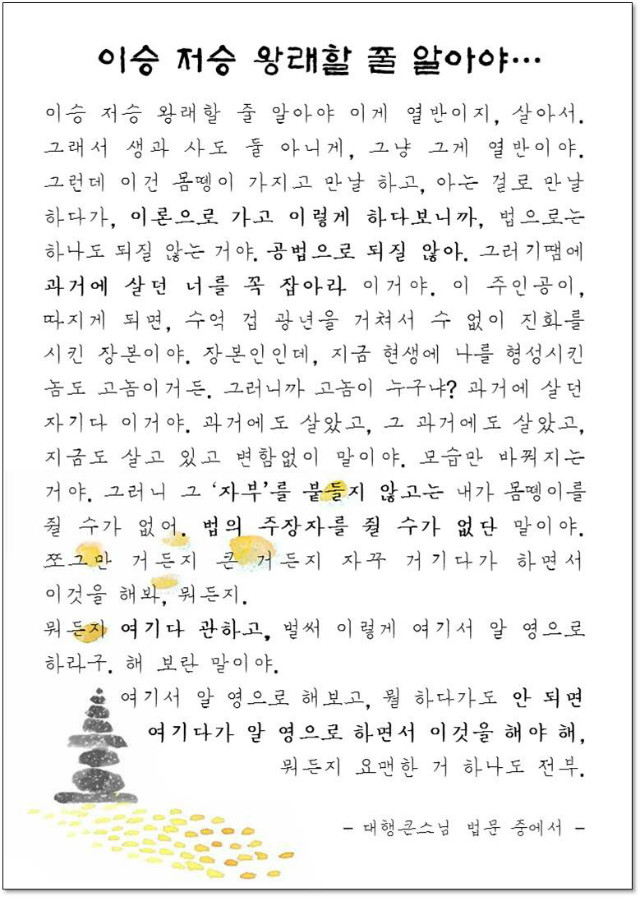 이승 저승 왕래할 줄 알아야…
이승 저승 왕래할 줄 알아야 이게 열반이지, 살아서.
그래서 생과 사도 둘 아니게, 그냥 그게 열반이야.
그런데 이건 몸뗑이 가지고 만날 하고, 아는 걸로 만날
하다가, 이론으로 가고 이렇게 하다보니까, 법으로는
하나도 되질 않는 거야. 공법으로 되질 않아. 그러기땜에
과거에 살던 너를 꼭 잡아라 이거야. 이 주인공이,
따지게 되면, 수억 겁 광년을 거쳐서 수 없이 진화를
시킨 장본이야. 장본인인데, 지금 현생에 나를 형성시킨
놈도 고놈이거든. 그러니까 고놈이 누구냐? 과거에 살던
자기다 이거야. 과거에도 살았고, 그 과거에도 살았고,
지금도 살고 있고 변함없이 말이야. 모습만 바꿔지는
거야. 그러니 그 ‘자부’를 붙들지 않고는 내가 몸뗑이를
쥘 수가 없어. 법의 주장자를 쥘 수가 없단 말이야.
쪼그만 거든지 큰 거든지 자꾸 거기다가 하면서
이것을 해봐, 뭐든지.
뭐든지 여기다 관하고, 벌써 이렇게 여기서 알 영으로
하라구. 해 보란 말이야.
여기서 알 영으로 해보고, 뭘 하다가도 안 되면
여기다가 알 영으로 하면서 이것을 해야 해,
뭐든지 요맨한 거 하나도 전부.
- 대행큰스님 법문 중에서 -